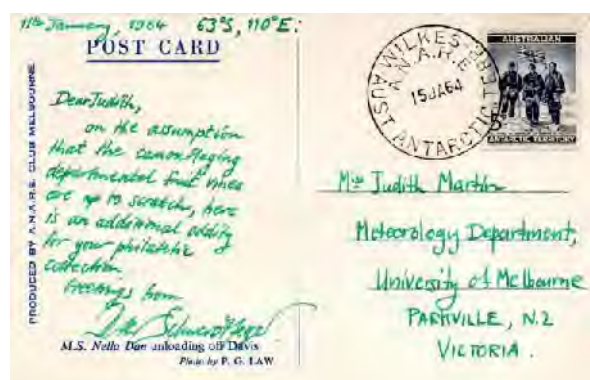 11th January, 1964 63°S, 110°E:
POST CARD
Dear Judith,
on the assumption
that the camouflaging
departmental fruit vines
are up to scratch, here
is an additional oddity
for your philatelic
collection.
Greetings from
M.S. Nella Dan unloading off Davis
Photo by P. G. LAW
PRODUCED BY A.N.A.R.E. CLUB MELBOURNE
WILKES
A.N.A.R.E.
15JA64
AUST ANTARCTIC TERR
AUSTRALIAN
5D
ANTARCTIC TERRITORY
Miss Judith Martin
Meteorology Department,
University of Melbourne
PARKVILLE, N.2
VICTORIA.